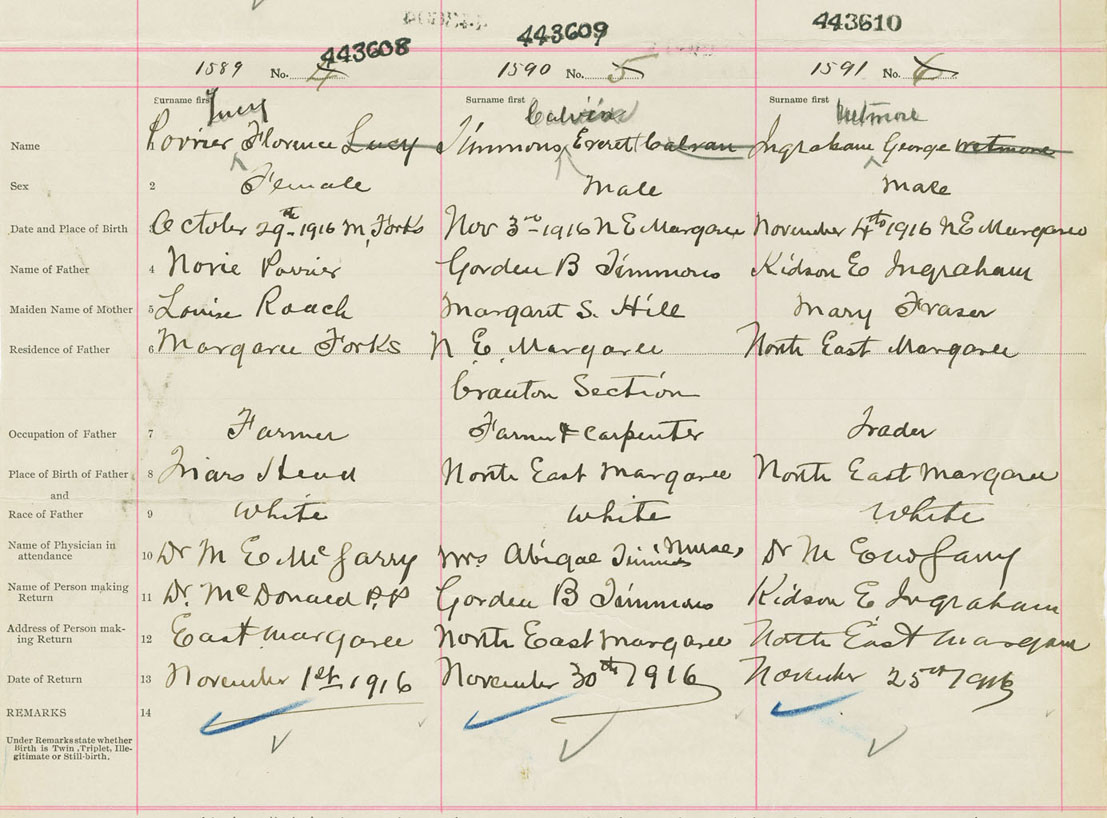 443608 443609 443610
1589 No. 4 1590 No. 5 1591 No. 6
Surname first Surname first Surname first
Lucy Calvin Wetmore
Name Povrier Florence Lucy Timmons Everet Calvan Ingraham George Wetmore
Sex 2 Female Male Male
Date and Place of Birth 3 October 29th 1916 M. Forks Nov 3rd 1916 N E Margaree November 4th 1916 N E Margaree
Name of Father 4 Novie Povrier Gorden B Timmons Kidson E Ingraham
Maiden Name of Mother 5 Louise Roach Margaret S. Hill Mary Fraser
Residence of Father 6 Margaree Forks N E. Margaree North East Margaree
Cranton Section
Occupation of Father 7 Farmer Farmer & Carpenter Trader
Place of Birth of Father 8 Friars Head North East Margaree North East Margaree
and
Race of Father 9 White White White
Name of Physician in
attendance 10 Dr M E McGarry Mrs Abigae Timmons Nurse Dr M E McGarry
Name of Person making
Return 11 Dr. McDonald P.P Gorden B Timmons Kidson E Ingraham
Address of Person mak-
ing Return 12 East Margaree North East Margaree North East Margaree
Date of Return 13 November 1st 1916 November 30th 1916 November 25th 1916
REMARKS 14
Under Remarks state whether
Birth is Twin, Triplet, Ille-
gitimate or Still-birth.